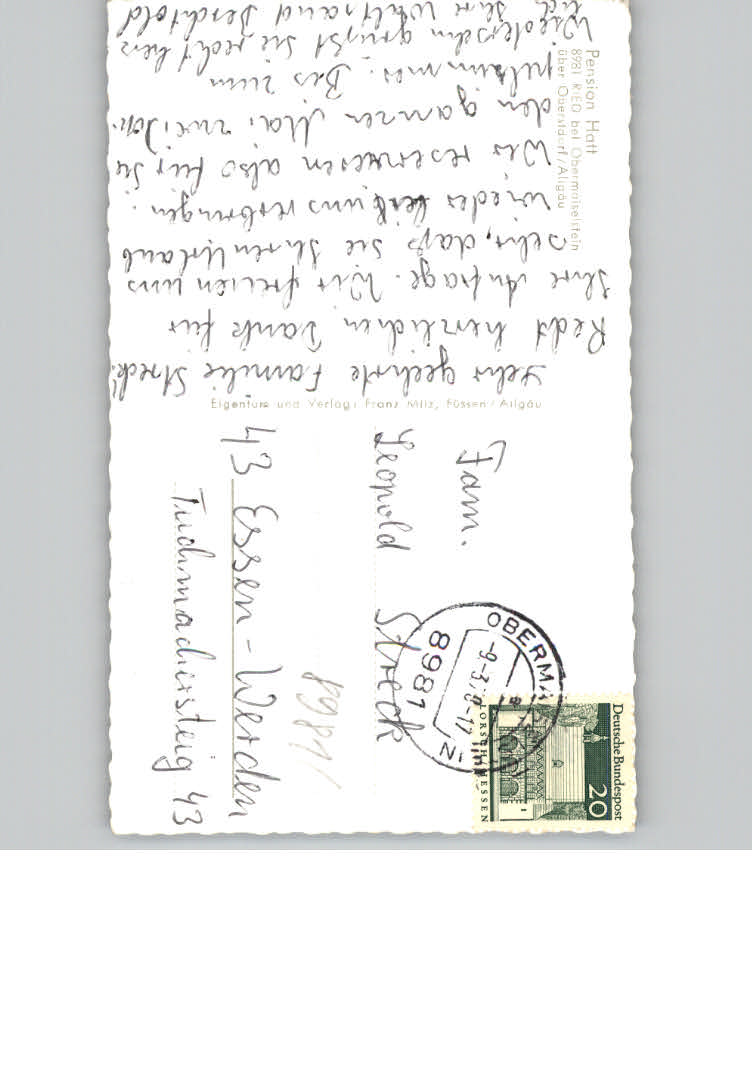 Pension Haft
8981 RIED bei Obermaiselstein
über Oberstdorf/Allgäu
Sehr geehrte Familie Streck!
Recht herzlichen Dank für
Ihre Anfrage. Wir freuen uns
sehr, daß Sie Ihren Urlaub
wieder bei uns verbringen.
Wir reservieren also für Sie
den ganzen Mai zwei Dop-
pelzimmer. Bis zum
Wiedersehn grüßt Sie recht herz
lich Ihre Waltraud Berchtold
Eigentum und Verlag: Franz Milz, Füssen/Allgäu
Deutsche Bundespost
20
LORSCH HESSEN
8981 OBERMA
-9-3.
Fam.
Leopold Streck
8981/
43 Essen-Werden
Tuchmachersteig 43